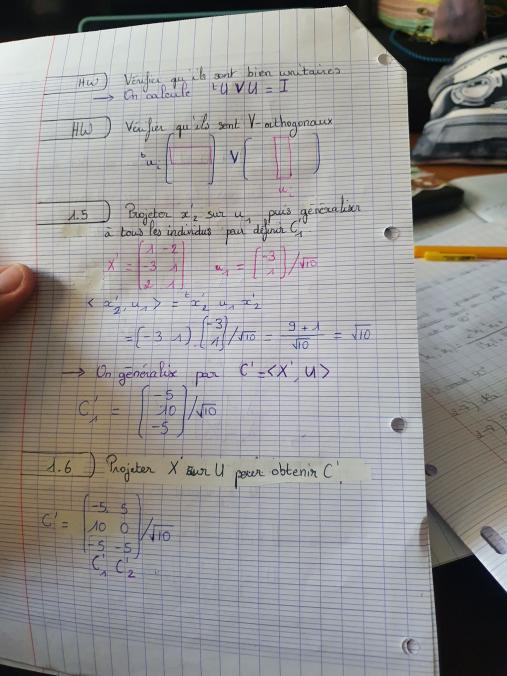 HW) Vérifier qu'ils sont bien unitaires
→ On calcule ᵗU V U = I
HW) Vérifier qu'ils sont V-orthogonaux
ᵗu₁ ( ) V ( )
u₂
1.5) Projeter x'₂ sur u₁ puis généraliser
à tous les individus par définir C'₁
X' = (1 -2
-3 1
2 1) u₁ = (-3
1)/√10
< x'₂, u₁ > = ᵗx'₂ u₁ x'₂
= (-3 1) . (-3
1)/√10 = (9 + 1)/√10 = √10
→ On généralise par C' = <X', U>
C'₁ = (-5
10
-5)/√10
1.6) Projeter X' sur U pour obtenir C'.
C' = (-5 5
10 0
-5 -5)/√10
C'₁ C'₂